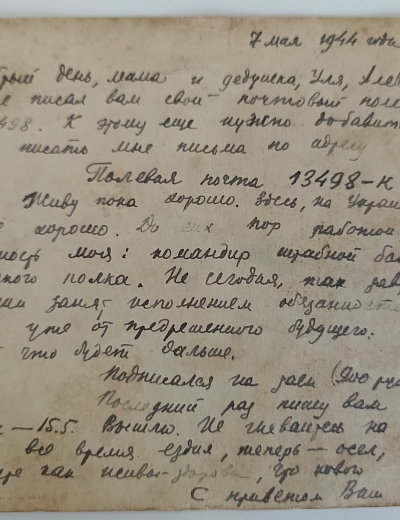 7 мая 1944 года
рый день, мама и дедушка, Уля, Але
е писал вам свой почтовый поле
498. К этому еще нужно добавит
писать мне письма по адресу
Полевая почта 13498-К
Живу пока хорошо. Здесь, на Украи
хорошо. До сих пор работой
ность моя: командир штабной ба
ского полка. Не сегодня, так зав
занят исполнением обязанносте
уже от предрешенного будущего.
что будет дальше.
Подписался на заем (900 ру
Последний раз пишу вам
— 15.5. Вышлю. Не гневайтесь на
все время ездил, теперь — осел,
как живы-здоровы, что нового
С приветом Ваш